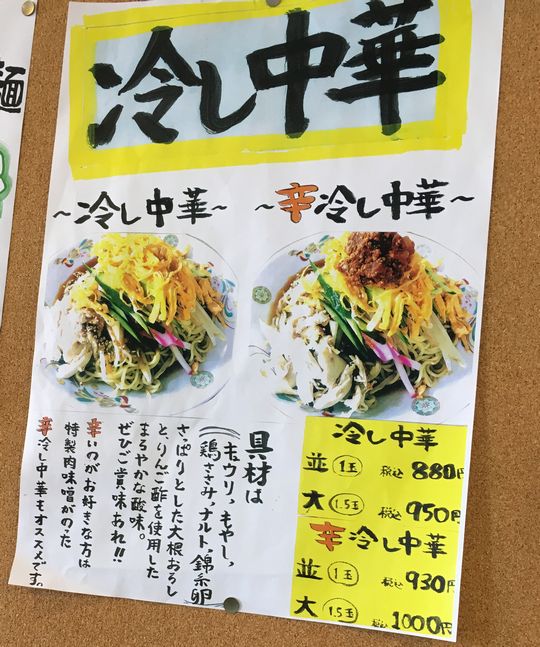 麺
冷し中華
～冷し中華～
～辛冷し中華～
具材は
キュウリ、もやし、
鶏ささみ、ナルト、錦糸卵
さっぱりとした大根おろし
と、りんご酢を使用した
まろやかな酸味。
ぜひご賞味あれ!!
辛いのがお好きな方は
特製肉味噌がのった
辛冷し中華もオススメです。
冷し中華
並 1玉 税込 880円
大 1.5玉 税込 950円
辛冷し中華
並 1玉 税込 930円
大 1.5玉 税込 1000円